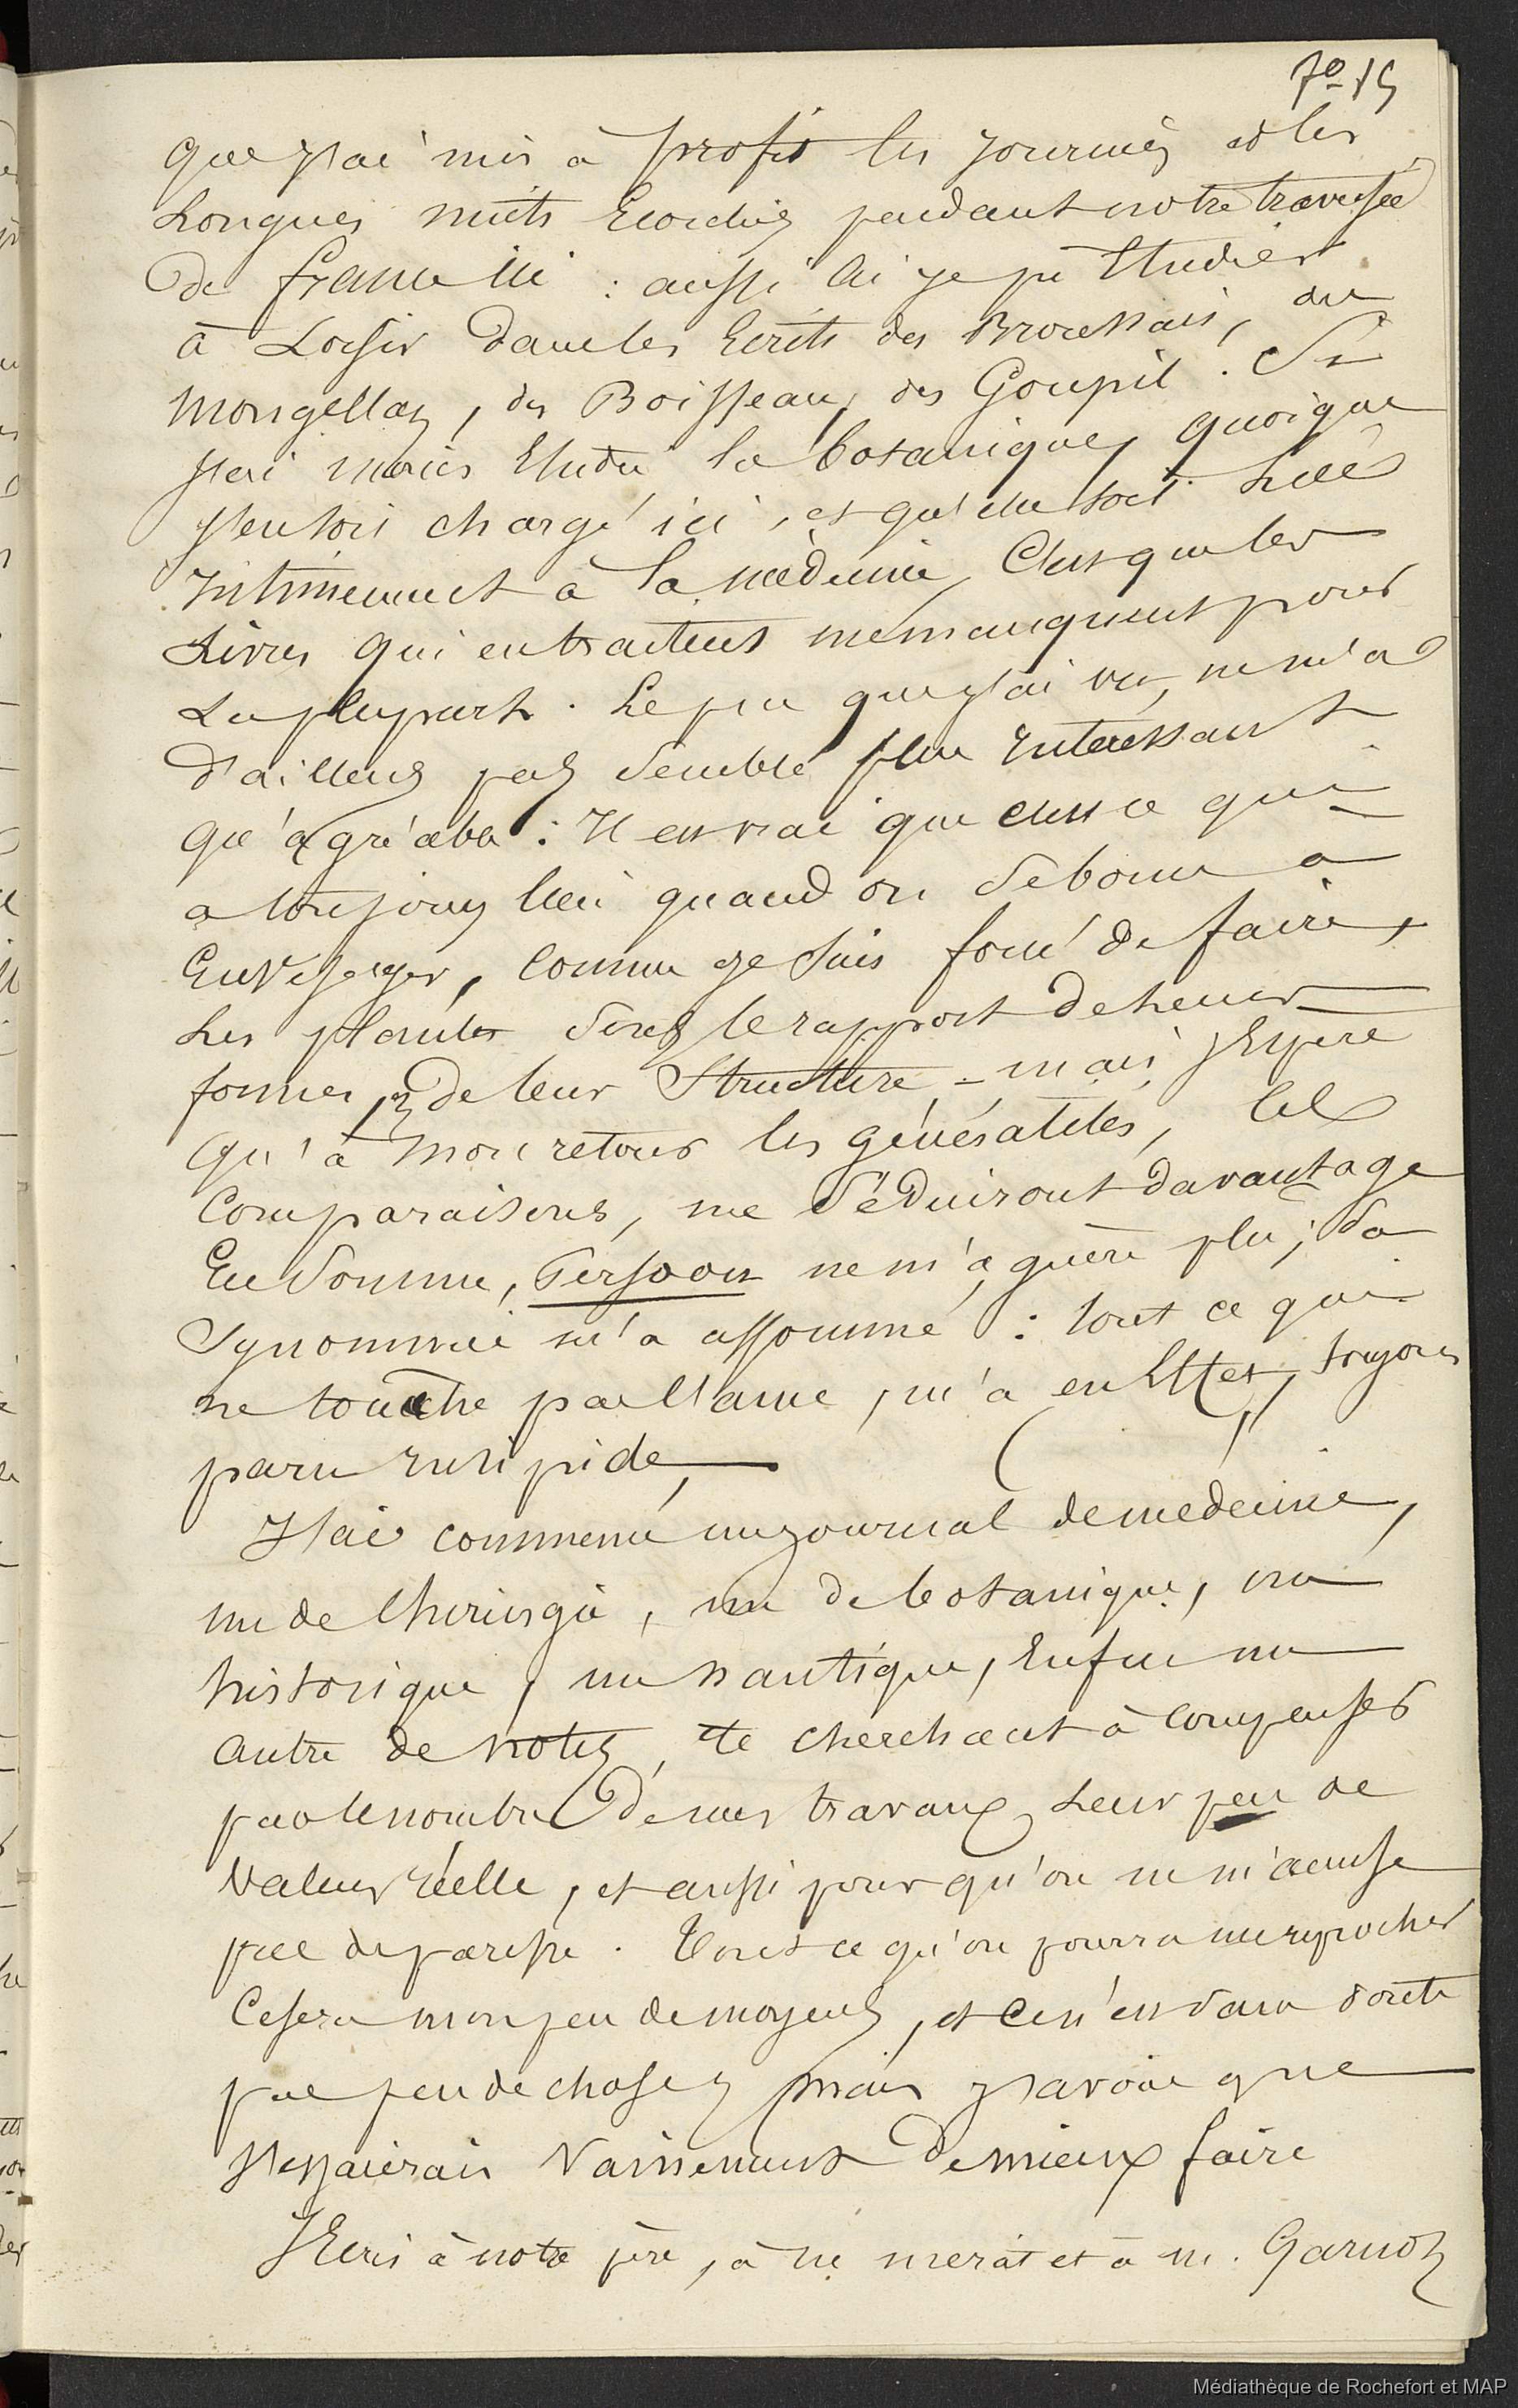 7º 15
que j'ai mis à profit les journées et les
Longues nuits Ecoulées pendant notre traversée
De france ici : aussi ai je pu Etudier
à Loisir dans les Ecrits des Broussais, des
Mongellaz, des Boisseau, des Goupil. Si
j'ai moins Etudié la botanique, quoique
j'en sois chargé ici, et qu'elle soit liée
Intimement à la médecine, C'est que les
Livres qui en traitent me manquent pour
La plupart. Le peu que j'ai vu, ne m'a
d'ailleurs pas semblé plus Intéressant
qu'agréable : Il est vrai que c'est ce qui
a toujours lieu quand on se borne à
Envisager, comme je suis forcé de faire,
Les plantes sous le rapport de leurs
formes, & de leur Structure - mais j'Espère
qu'à mon retour les généralités, les
Comparaisons, me séduiront davantage
En Somme, Persoon ne m'a guère plu ; Sa
Synonimie m'a assommé : tout ce qui
ne touche pas l'ame, m'a en Effet, toujours
paru Insipide,
J'ai commencé un journal de médecine,
un de Chirurgie, un de botanique, un
historique, un nautique, Enfin un
autre de notes, Cherchant à compenser
par le nombre de mes travaux, Leur peu de
Valeur réelle, et aussi pour qu'on ne m'accuse
pas de paresse. Tout ce qu'on pourra me reprocher
Ce sera mon peu de moyens, et ce n'est sans doute
pas peu de chose, mais j'avoue que
j'essaierais Vainement De mieux faire
J'Ecris à notre père, à M. merat et à M. Garnot